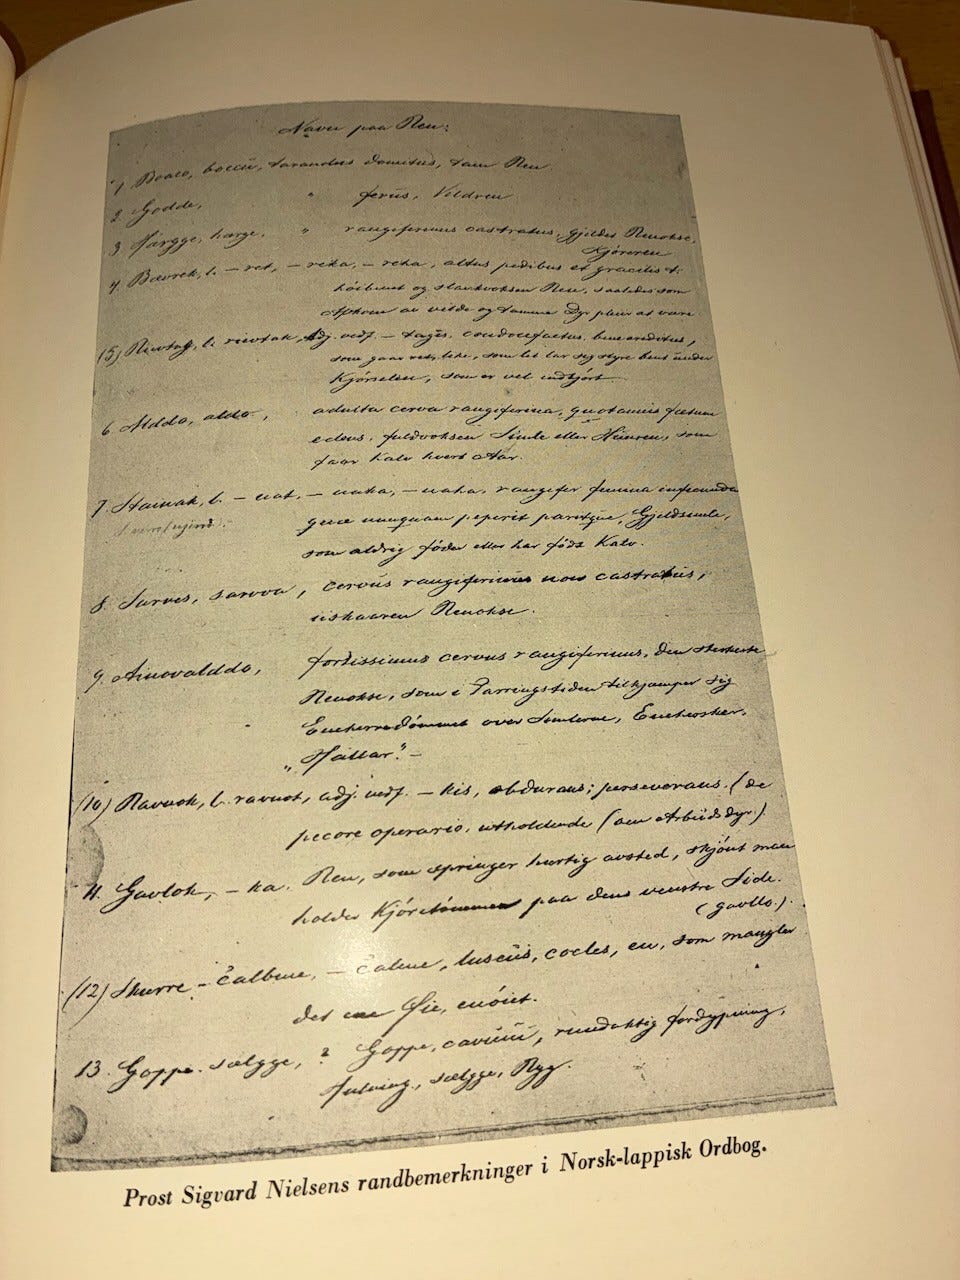 Navn paa Ren:
1. Boaco, boccu, tarandus domitus, tam Ren
2. Godde, " ferus, Vildren
3. Hærgge, hærge, " rangiferinus castratus, gjeldet Renokse,
Kjøreren
4. Bævrek, l. – ret, – reka, – reha, altus pedibus et gracilis
höibenet og slankvoksen Ren, saaledes som
av vilde og tamme Dyr pleier at være
(5) l. adj. vedf. – tages, condocefactus, bene
som gaar ret, som let lar sig styre under
Kjørselen, som er vel indkjørt
6. Alddo, aldo, adulta cerva rangiferina, quotannis foetum
edens, fuldvoksen Simle eller Hunren, som
faar Kalv hvert Aar.
7. Stainak, l. – nat, – naka, – naha, rangifer femina infecunda
quæ nunquam peperit paritque, Gjeldsimle,
som aldrig föder eller har födt Kalv.
8. Sarves, sarvva, cervus rangiferinus non castratus,
uskaaren Renokse.
9. Ainovalddo, fortissimus cervus rangiferinus, den sterkeste
Renokse, som i Parringstiden tilkjæmper sig
Eneherredömmet over Simlerne, Enehersker,
"Hallar." –
(10) Ravnok, l. ravnot, adj. vedf. – kis, obdurans; perseverans. (de
pecore operario, utholdende (om Arbeidsdyr)
11. Gavlok, – ka. Ren, som springer hurtig avsted, skjönt man
holder Kjöretömmen paa dens venstre Side.
(gavllo.)
(12) Skurre – čalbme, – čalme, luscus, cocles, en, som mangler
det ene Öie, enöiet.
13. Goppe – sælgge, ? Goppe, cavum, rundaktig fordypning,
Hulning, sælgge, Ryg.
Prost Sigvard Nielsens randbemerkninger i Norsk-lappisk Ordbog.